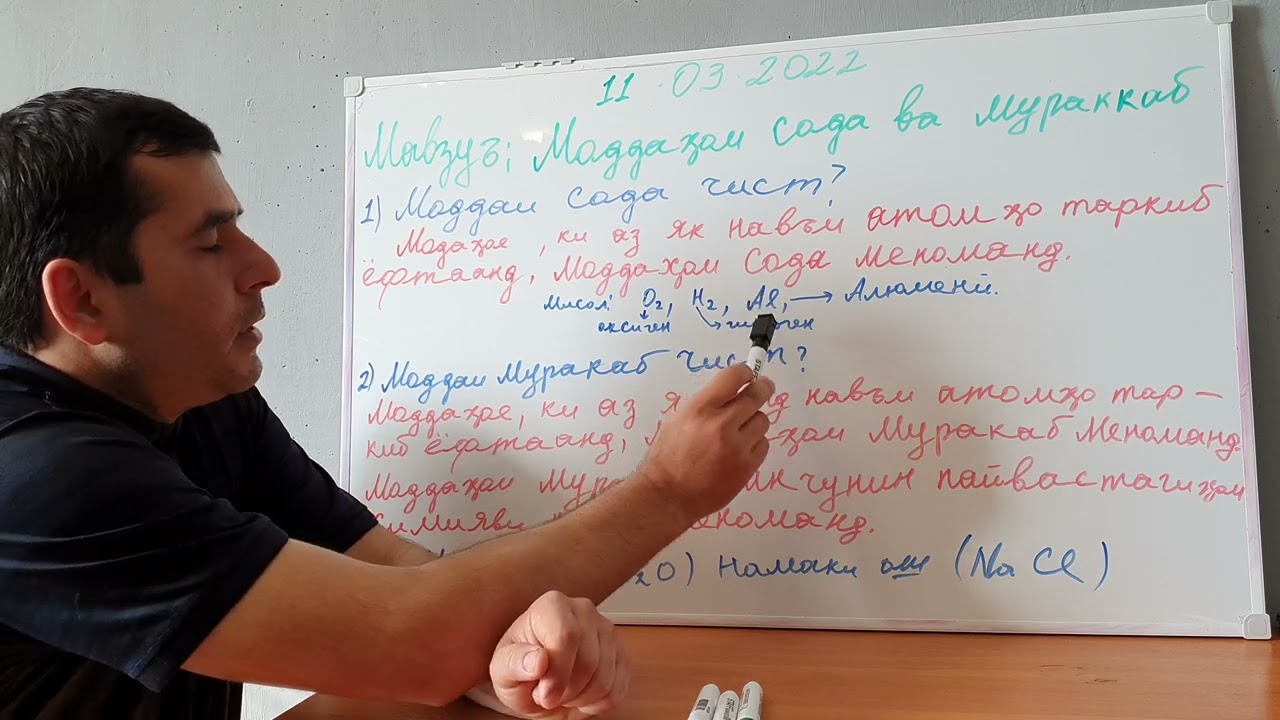 11.03.2022
Мавзуъ; Моддаҳои сода ва Мураккаб
1) Моддаи сода чист?
Модаҳое, ки аз як навъи атом ҳо таркиб
ёфтаанд, Моддаҳои Сода меноманд.
Мисол: O2, H2, Al, → Алюмений.
оксиген гидроген
2) Моддаи Муракаб чист?
Моддаҳое, ки аз навъи атомҳо тар –
киб ёфтаанд, Муракаб Меноманд.
Моддаҳои пайвастагиҳои
меноманд.
2O) намаки ош (NaCl)